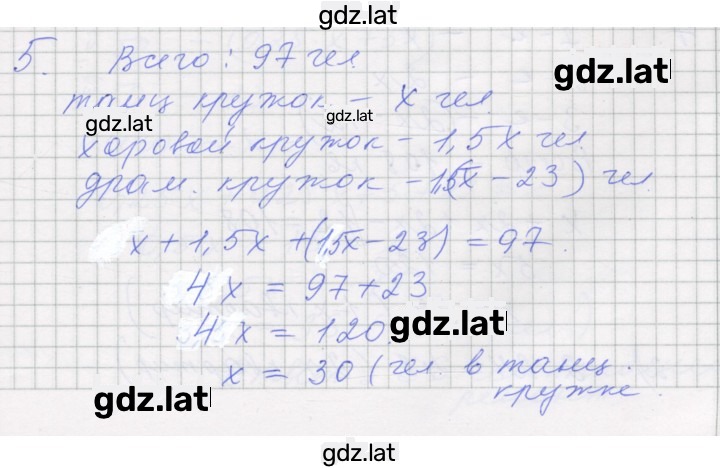 gdz.lat
5. Всего: 97 чел
gdz.lat
танц кружок – x чел.
gdz.lat
gdz.lat
хоровой кружок – 1,5x чел
драм. кружок – (1,5x – 23) чел
x + 1,5x + (1,5x – 23) = 97.
4x = 97 + 23
4x = 120.
gdz.lat
x = 30 (чел. в танц.
кружке.
gdz.lat
gdz.lat